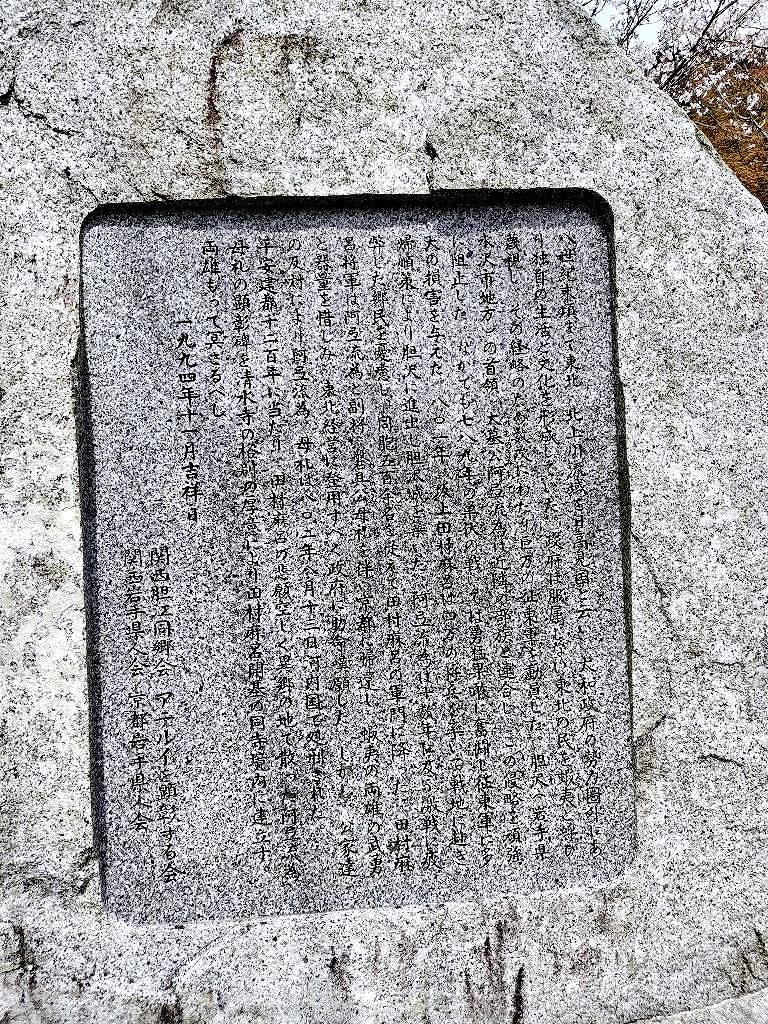 八世紀末頃まで東北・北上川流域を日高見国と云い、大和政府の勢力圏外にあ
り独自の生活と文化を形成していた。政府は服属しない東北の民を蝦夷と呼び
蔑視し、その経略のため数次にわたり巨万の征東軍を動員した。胆沢(岩手県
水沢市地方)の首領、大墓公阿弖流為は近隣の部族と連合し、この侵略を頑強
に阻止した。なかでも七八九年の巣伏の戦いでは勇猛果敢に奮闘し征東軍に多
大の損害を与えた。八〇一年、坂上田村麻呂は四万の将兵を率いて戦地に赴き
帰順策により胆沢に進出し胆沢城を築いた。阿弖流為は十数年に及ぶ激戦に疲
弊した郷民を憂慮し、同胞五百余名を従えて田村麻呂の軍門に降った。田村麻
呂将軍は阿弖流為と副将磐具公母礼を伴い京都に帰還し、蝦夷の両雄の武勇
と器量を惜しみ、東北経営に登用すべく政府に助命嘆願した。しかし公家達
の反対により阿弖流為、母礼は八〇二年八月十三日河内国で処刑された。
平安建都千二百年に当たり、田村麻呂の悲願空しく異郷の地で散った阿弖流為
母礼の顕彰碑を清水寺の格別の厚意により田村麻呂開基の同寺境内に建立す。
両雄もって冥さるべし
一九九四年十一月吉祥日
関西胆江同郷会 アテルイを顕彰する会
関西岩手県人会 京都岩手県人会